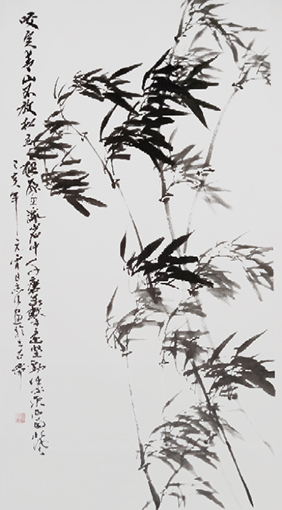 咬定青山不放松立根原在破岩中千磨萬擊还坚劲任尔东西南北风
己亥年元宵日